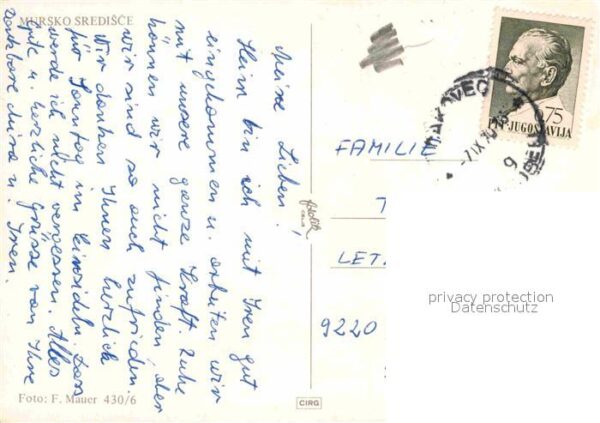 MURSKO SREDIŠČE
Meine Lieben!
Heim bin ich mit Iren gut
eingekommen u. arbeiten wir
mit unsere ganze Kraft. Ruhe
können wir nicht finden, aber
wir sind so auch zufrieden.
Wir danken Ihnen herzlich
für Sonntag in Einsideln. Das
werde ich nicht vergessen. Alles
gute u. herzliche Grüsse von Ihre
dankbare Mira u. Iren.
Foto: F. Mauer 430/6
CIRG
75
JUGOSLAVIJA
FAMILIE
LET.
9220
privacy protection
Datenschutz